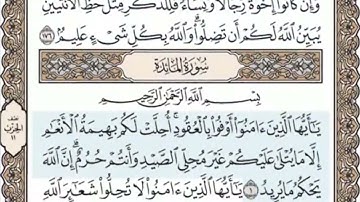 وَإِن كَانُوٓا۟ إِخْوَةًۭ رِّجَالًۭا وَنِسَآءًۭ فَلِلذَّكَرِ مِثْلُ حَظِّ ٱلْأُنثَيَيْنِ ۗ
يُبَيِّنُ ٱللَّهُ لَكُمْ أَن تَضِلُّوا۟ ۗ وَٱللَّهُ بِكُلِّ شَىْءٍ عَلِيمٌۢ ١٧٦
سُورَةُ المَائِدَةِ
بِسْمِ ٱللَّهِ ٱلرَّحْمَٰنِ ٱلرَّحِيمِ
يَٰٓأَيُّهَا ٱلَّذِينَ ءَامَنُوٓا۟ أَوْفُوا۟ بِٱلْعُقُودِ ۚ أُحِلَّتْ لَكُم بَهِيمَةُ ٱلْأَنْعَٰمِ
إِلَّا مَا يُتْلَىٰ عَلَيْكُمْ غَيْرَ مُحِلِّى ٱلصَّيْدِ وَأَنتُمْ حُرُمٌ ۗ إِنَّ ٱللَّهَ
يَحْكُمُ مَا يُرِيدُ ١ يَٰٓأَيُّهَا ٱلَّذِينَ ءَامَنُوا۟ لَا تُحِلُّوا۟ شَعَٰٓئِرَ ٱللَّهِ
نصف
الحزب
١١